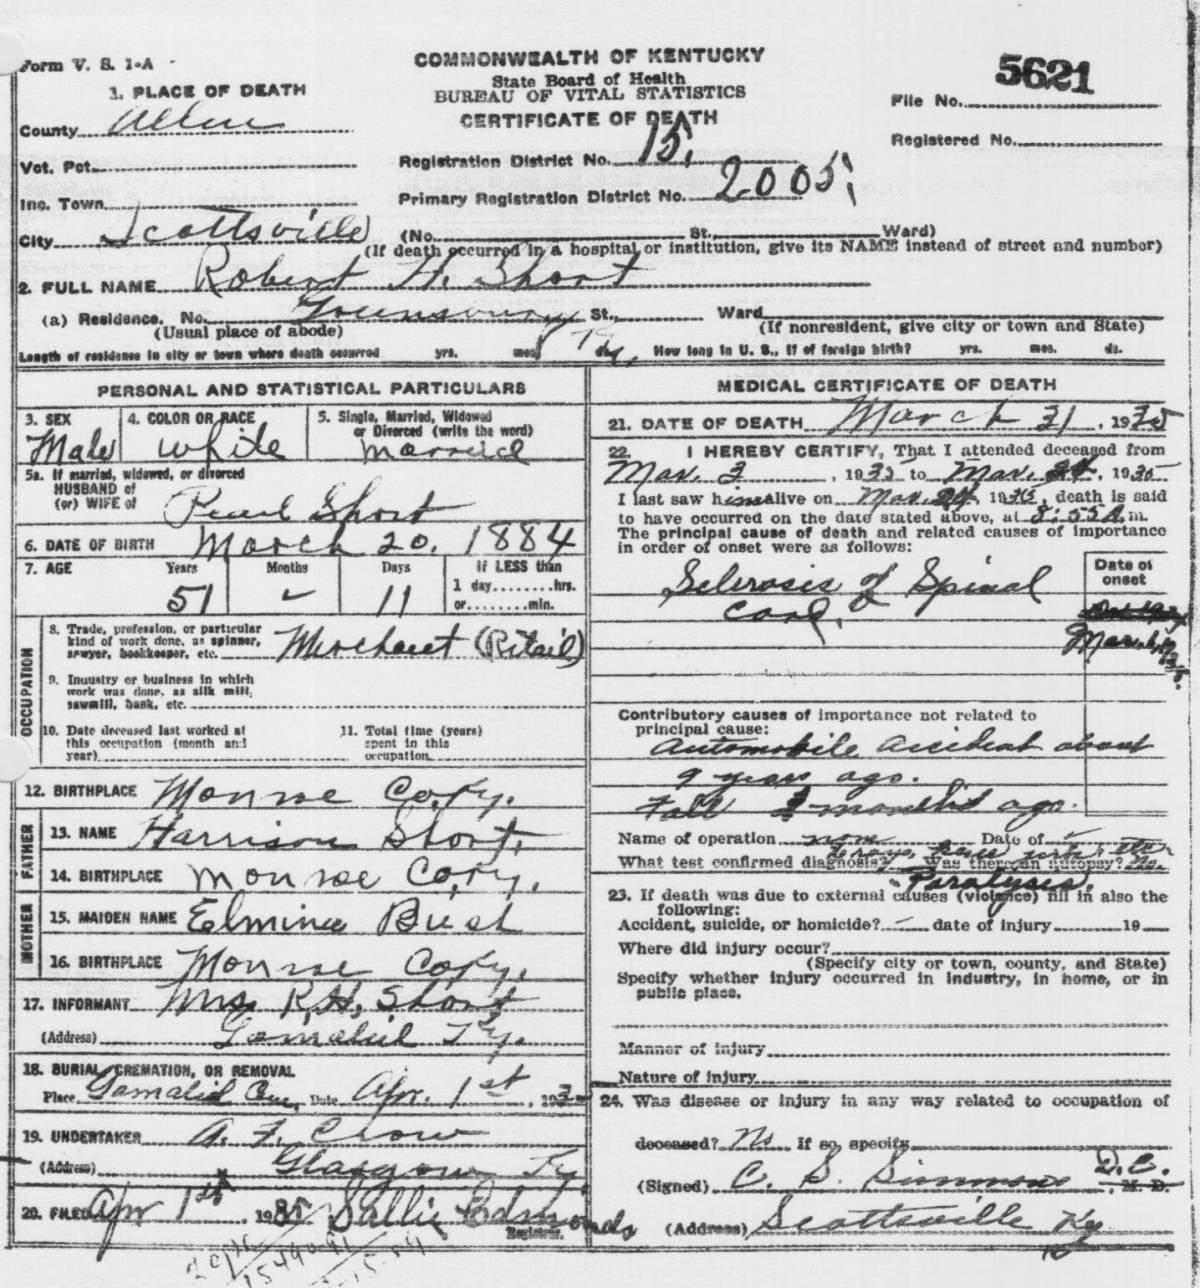 Form V. S. 1-A
COMMONWEALTH OF KENTUCKY
State Board of Health
BUREAU OF VITAL STATISTICS
CERTIFICATE OF DEATH
5621
File No.
Registered No.
1. PLACE OF DEATH
County Allen
Vot. Pct.
Inc. Town
City Scottsville
Registration District No. 15,
Primary Registration District No. 2005;
(No. St. Ward)
(If death occurred in a hospital or institution, give its NAME instead of street and number)
2. FULL NAME Robert H. Short
(a) Residence. No. St., Ward
(Usual place of abode)
(If nonresident, give city or town and State)
Length of residence in city or town where death occurred yrs. mos. ds. How long in U. S., if of foreign birth? yrs. mos. ds.
PERSONAL AND STATISTICAL PARTICULARS
3. SEX
Male
4. COLOR OR RACE
white
5. Single, Married, Widowed
or Divorced (write the word)
married
5a. If married, widowed, or divorced
HUSBAND of
(or) WIFE of Pearl Short
6. DATE OF BIRTH March 20, 1884
7. AGE Years Months Days If LESS than
51 - 11 1 day........hrs.
or........min.
OCCUPATION
8. Trade, profession, or particular
kind of work done, as spinner,
sawyer, bookkeeper, etc. Merchant (Retail)
9. Industry or business in which
work was done, as silk mill,
sawmill, bank, etc.
10. Date deceased last worked at
this occupation (month and
year)
11. Total time (years)
spent in this
occupation
12. BIRTHPLACE Monroe Co, Ky.
FATHER
13. NAME Harrison Short,
14. BIRTHPLACE Monroe Co, Ky.
MOTHER
15. MAIDEN NAME Elmina
16. BIRTHPLACE Monroe Co, Ky.
17. INFORMANT Mrs. R, H, Short
(Address) Gamaliel Ky.
18. BURIAL, CREMATION, OR REMOVAL
Place Gamaliel Cem, Date Apr. 1st, 193
19. UNDERTAKER A. F. Crow
(Address) Glasgow Ky
20. FILED Apr 1st, 1935 Sallie Edmonds
Registrar.
MEDICAL CERTIFICATE OF DEATH
21. DATE OF DEATH March 31, 1935
22. I HEREBY CERTIFY, That I attended deceased from
Mar. 3, 1935 to Mar. 24, 1935
I last saw him alive on Mar. 24, 1935, death is said
to have occurred on the date stated above, at 8:55 A. m.
The principal cause of death and related causes of importance
in order of onset were as follows:
Date of
onset
Sclerosis of Spinal
Cord,
Contributory causes of importance not related to
principal cause:
Automobile accident about
9 years ago.
Fall months ago.
Name of operation none Date of -
What test confirmed diagnosis? Was there an autopsy? No.
Paralysis.
23. If death was due to external causes (violence) fill in also the
following:
Accident, suicide, or homicide? - date of injury 19
Where did injury occur?
(Specify city or town, county, and State)
Specify whether injury occurred in industry, in home, or in
public place.
Manner of injury
Nature of injury
24. Was disease or injury in any way related to occupation of
deceased? No If so, specify
(Signed) C. S. Simmons D.C., M. D.
(Address) Scottsville Ky